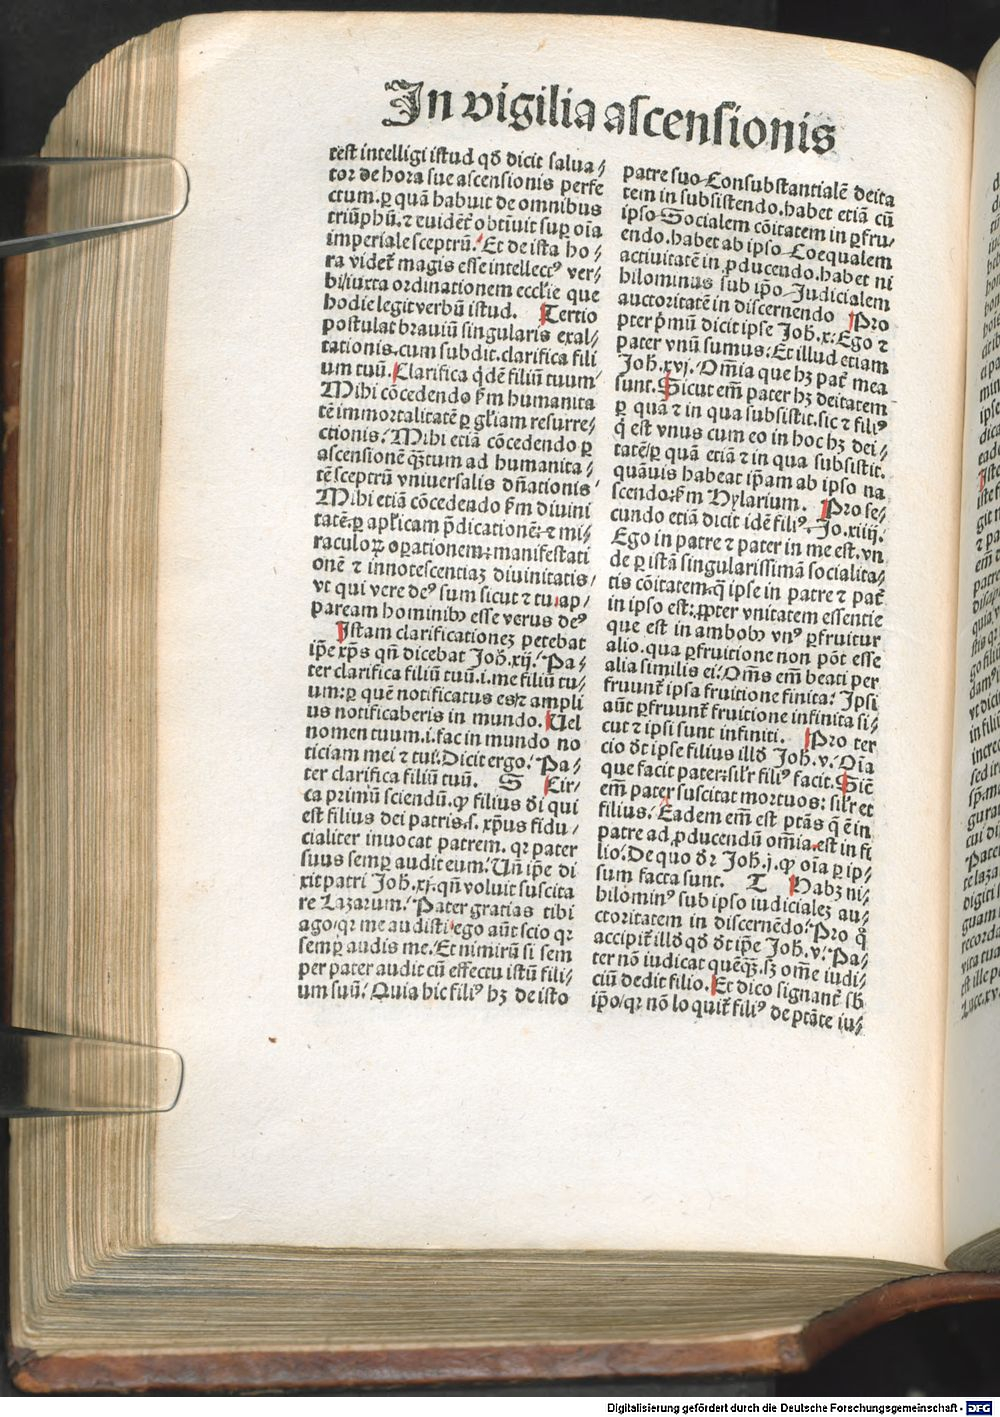 In vigilia ascensionis
test intelligi istud qđ dicit salua⸗
tor de hora sue ascensionis perfe
ctum. ꝑ quā habuit de omnibus
triūphū. ⁊ euidēt̄ obtinuit suꝑ oīa
imperiale sceptrū. Et de ista ho⸗
ra videt̄ magis esse intellectꝰ ver⸗
bi/iuxta ordinationem eccl̄ie que
hodie legit verbū istud. Tertio
postulat brauiū singularis exal⸗
tationis. cum subdit. clarifica fili
um tuū. Clarifica q̄dē filiū tuum
Mihi cōcedendo ẜm humanita
tē immortalitatē ꝑ gl̄iam resurre⸗
ctionis. Mihi etiā cōcedendo ꝑ
ascensionē qȝtum ad humanita⸗
tē sceptrū vniuersalis dn̄ationis
Mihi etiā cōcedendo ẜm diuini
tatē. ꝑ apl̄icam p̄dicationē: ⁊ mi⸗
raculoꝝ oꝑationem: manifestati
onē ⁊ innotescentiaȝ diuinitatis/
vt qui vere deꝰ sum sicut ⁊ tu. ap⸗
paream hominibꝰ esse verus deꝰ
Istam clarificationeȝ petebat
ip̄e xp̄s qn̄ dicebat Joh. xij. Pa⸗
ter clarifica filiū tuū. i. me filiū tu⸗
um: ꝑ quē notificatus es/⁊ ampli
us notificaberis in mundo. Uel
nomen tuum. i. fac in mundo no
ticiam mei ⁊ tui. Dicit ergo. Pa⸗
ter clarifica filiū tuū. S Cir⸗
ca primū sciendū. ꝙ filius dei qui
est filius dei patris. s. xp̄us fidu⸗
cialiter inuocat patrem. qꝛ pater
suus semꝑ audit eum. Un̄ ip̄e di
xit patri Joh. xj. qn̄ voluit suscita
re Lazarum. Pater gratias tibi
ago/qꝛ me audisti/ego aūt scio qꝛ
semꝑ audis me. Et nimirū si sem
per pater audit cū effectu istū fili⸗
um suū. Quia hic filiꝰ hȝ de isto
patre suo Consubstantialē deita
tem in subsistendo. habet etiā cū
ipso Socialem cōitatem in ꝑfru⸗
endo. habet ab ipso Coequalem
actiuitatē in ꝓducendo. habet ni
hilominus sub ip̄o Judicialem
auctoritatē in discernendo Pro
pter p̄mū dicit ipse Joh. x. Ego ⁊
pater vnū sumus. Et illud etiam
Joh. xvj. Om̄ia que hȝ pat̄ mea
sunt. Sicut em̄ pater hȝ deitatem
ꝑ quā ⁊ in qua subsistit. sic ⁊ filiꝰ
q̄ est vnus cum eo in hoc hȝ dei⸗
tatē/ꝑ quā etiā ⁊ in qua subsistit.
quāuis habeat ip̄am ab ipso na
scendo: ẜm Hylarium. Pro se⸗
cundo etiā dicit idē filiꝰ. Jo. xiiij.
Ego in patre ⁊ pater in me est. vn
de ꝑ istā singularissimā socialita⸗
tis cōitatem. q̄ ipse in patre ⁊ pat̄
in ipso est: ꝓpter vnitatem essentie
que est in ambobꝰ vnꝰ ꝑfruitur
alio. qua ꝑfruitione non pōt esse
alia similis ei. Om̄s em̄ beati per
fruunt̄ ipsa fruitione finita. Ipsi
aūt ꝑfruunt̄ fruitione infinita si⸗
cut ⁊ ipsi sunt infiniti. Pro ter
cio d̄t ipse filius illđ Joh. v. Oīa
que facit pater: sil̄r filiꝰ facit. Sic̄
em̄ pater suscitat mortuos: sil̄r et
filius. Eadem em̄ est ptās q̄ ē in
patre ad ꝓducendū om̄ia. est in fi
lio. De quo d̄r Joh. j. ꝙ oīa ꝑ ip⸗
sum facta sunt. T Habȝ ni⸗
hilominꝰ sub ipso iudicialeȝ au⸗
ctoritatem in discernēdo. Pro q̊
accipit̄ illđ qđ d̄t ip̄e Joh. v. Pa⸗
ter nō iudicat quēqȝ. sȝ om̄e iudi⸗
ciū dedit filio. Et dico signant̄ sb̄
ip̄o/qꝛ nō loquit̄ filiꝰ de ptāte iu⸗
Digitalisierung gefördert durch die Deutsche Forschungsgemeinschaft - DFG